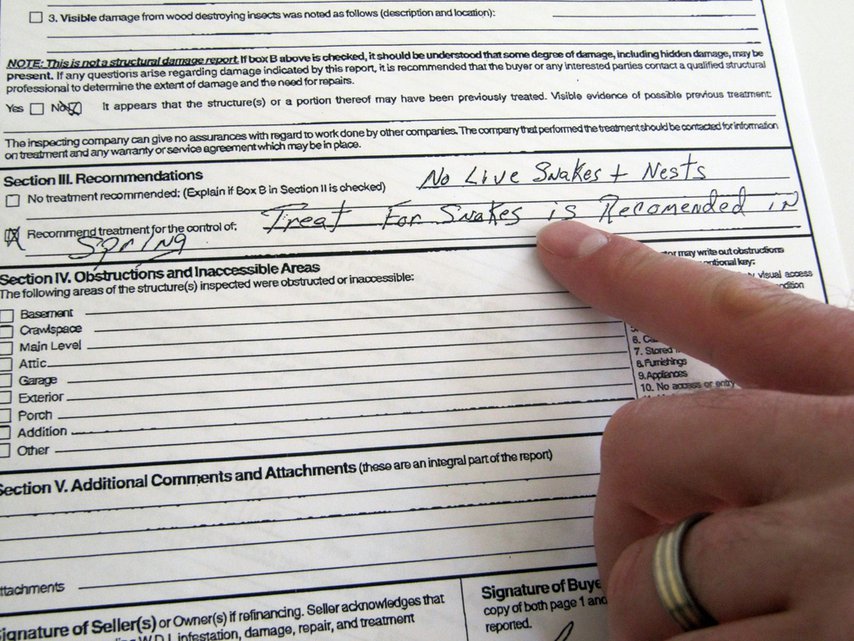 3. Visible damage from wood destroying insects was noted as follows (description and location):
NOTE: This is not a structural damage report. If box B above is checked, it should be understood that some degree of damage, including hidden damage, may be
present. If any questions arise regarding damage indicated by this report, it is recommended that the buyer or any interested parties contact a qualified structural
professional to determine the extent of damage and the need for repairs.
Yes No It appears that the structure(s) or a portion thereof may have been previously treated. Visible evidence of possible previous treatment:
The inspecting company can give no assurances with regard to work done by other companies. The company that performed the treatment should be contacted for information
on treatment and any warranty or service agreement which may be in place.
Section III. Recommendations
No treatment recommended: (Explain if Box B in Section II is checked) No Live Snakes + Nests
Recommend treatment for the control of: Treat For Snakes is Recomended in
Spring
Section IV. Obstructions and Inaccessible Areas
The following areas of the structure(s) inspected were obstructed or inaccessible:
may write out obstructions
key:
visual access
Basement
Crawlspace
Main Level
Attic
Garage
Exterior
Porch
Addition
Other
7. Stored
8. Furnishings
9. Appliances
10. No access or entry
Section V. Additional Comments and Attachments (these are an integral part of the report)
Signature of Seller(s) or Owner(s) if refinancing. Seller acknowledges that
infestation, damage, repair, and treatment
Signature of
copy of both page 1 and
reported.